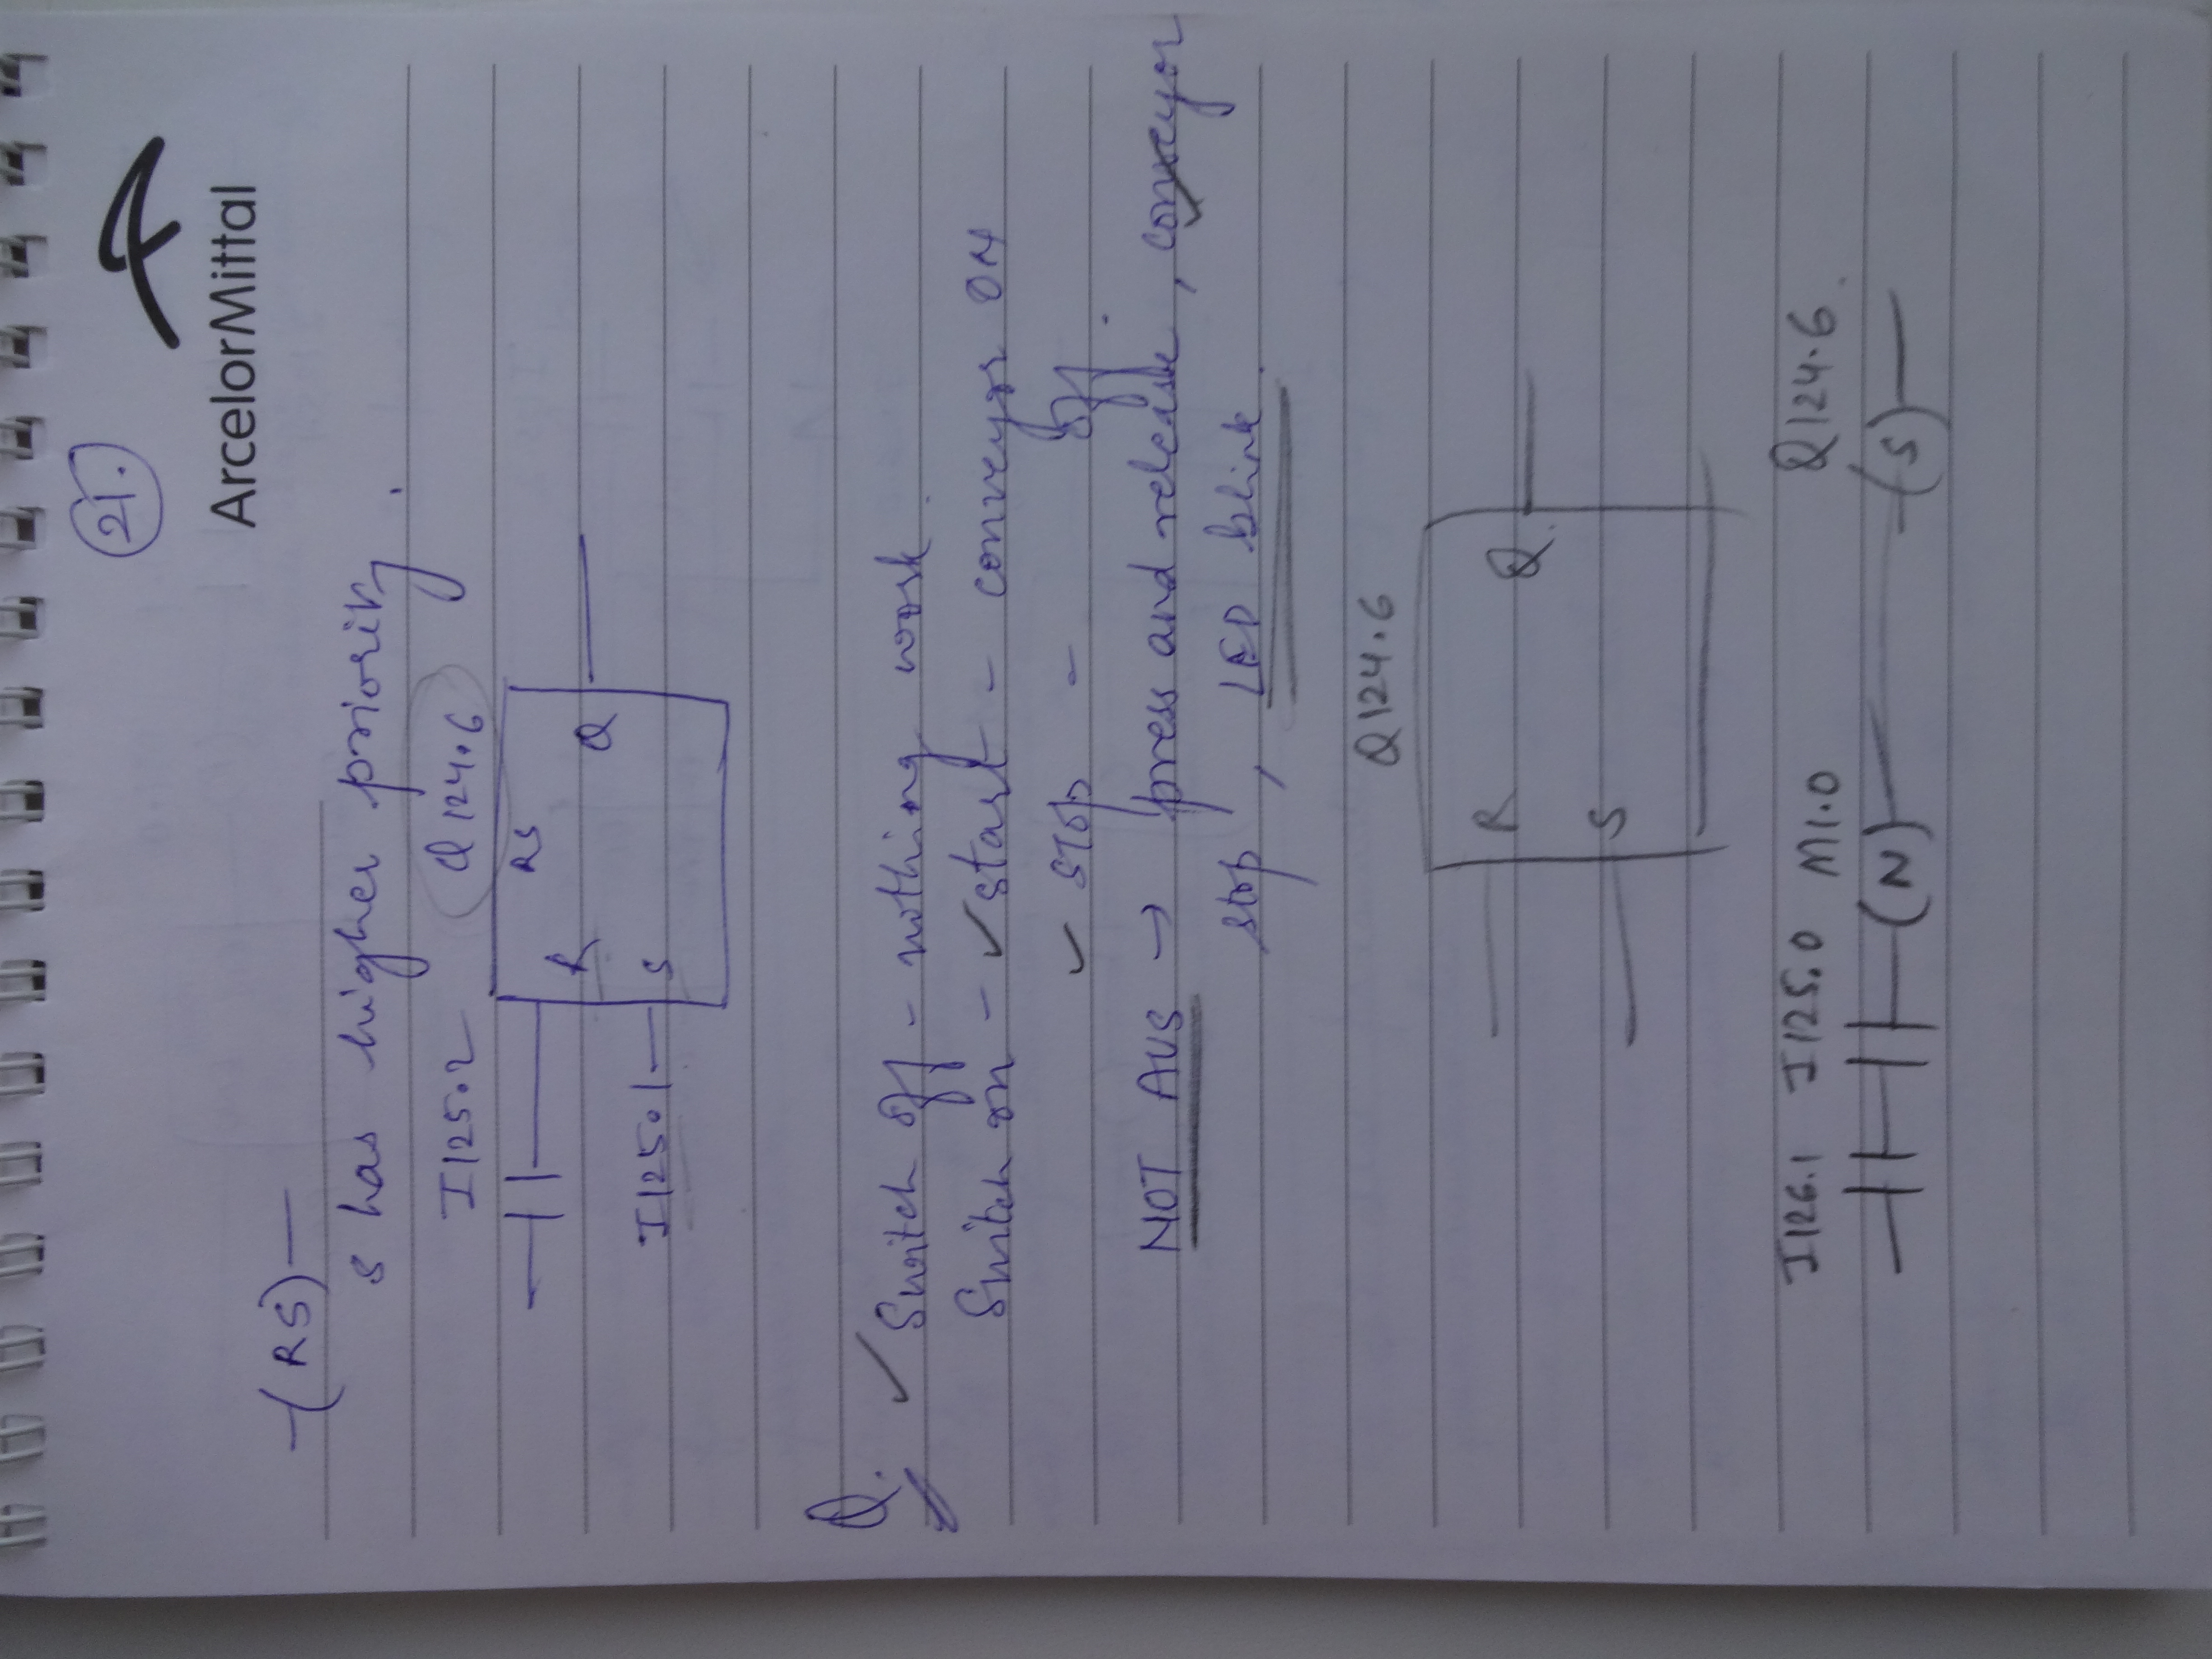 21.
ArcelorMittal
(RS)
S has higher priority.
I125.2 Q124.6
RS
R Q
I125.1 S
Q. Switch off - nothing work
Switch on - start - conveyor ON
STOP - off.
NOT AUS → press and release, conveyor
stop, LED blink.
Q124.6
R Q
S
I126.1 I125.0 M1.0 Q124.6
(N) (S)